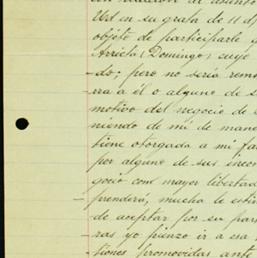 en relación de asunto
Ud en su grata de 11 d
objeto de participarle q
Arrieta (Domingo) cuyo
do; pero no sería remo
rra a él o alguno de s
motivo del negocio de
niendo de mi de mane
tiene otorgada a mi fa
por alguno de sus incon
gocio com mayor libertad
prenderá, mucho le esti
de aceptar por su par
ras yo pienzo ir a esa
tiones promovidas ante